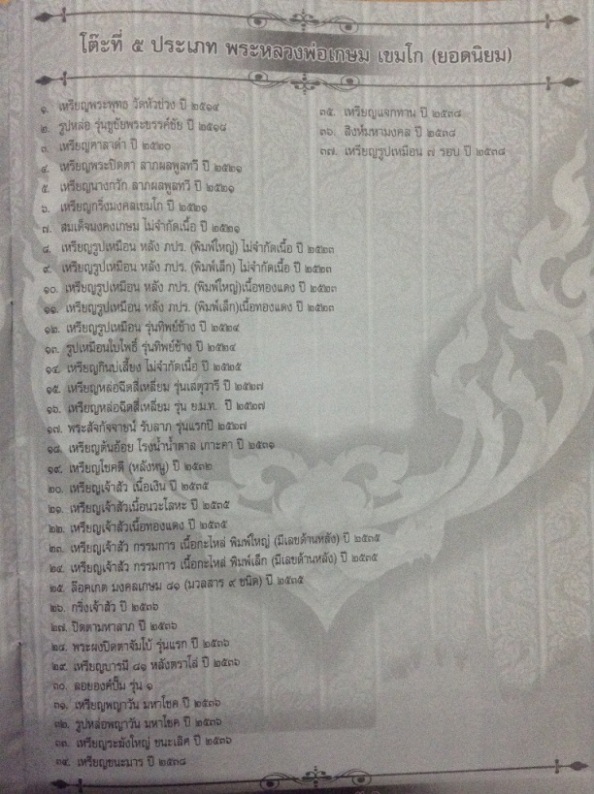 โต๊ะที่ ๕ ประเภท พระหลวงพ่อเกษม เขมโก (ยอดนิยม)
๑. เหรียญพระพุทธ วัดหัวข่วง ปี ๒๕๑๔
๒. รูปหล่อ รุ่นชูชัยพระธรรค์ชัย ปี ๒๕๑๘
๓. เหรียญศาลาดำ ปี ๒๕๒๐
๔. เหรียญพระปิดตา ลาภผลพูลทวี ปี ๒๕๒๑
๕. เหรียญนางกวัก ลาภผลพูลทวี ปี ๒๕๒๑
๖. เหรียญกริ่งมงคลเขมโก ปี ๒๕๒๑
๗. สมเด็จมงคงเกษม ไม่จำกัดเนื้อ ปี ๒๕๒๑
๘. เหรียญรูปเหมือน หลัง ภปร. (พิมพ์ใหญ่) ไม่จำกัดเนื้อ ปี ๒๕๒๓
๙. เหรียญรูปเหมือน หลัง ภปร. (พิมพ์เล็ก) ไม่จำกัดเนื้อ ปี ๒๕๒๓
๑๐. เหรียญรูปเหมือน หลัง ภปร. (พิมพ์ใหญ่)เนื้อทองแดง ปี ๒๕๒๓
๑๑. เหรียญรูปเหมือน หลัง ภปร. (พิมพ์เล็ก)เนื้อทองแดง ปี ๒๕๒๓
๑๒. เหรียญรูปเหมือน รุ่นทิพย์ช้าง ปี ๒๕๒๔
๑๓. รูปเหมือนใบโพธิ์ รุ่นทิพย์ช้าง ปี ๒๕๒๔
๑๔. เหรียญกินบ่เสี้ยง ไม่จำกัดเนื้อ ปี ๒๕๒๕
๑๕. เหรียญหล่อฉีดสี่เหลี่ยม รุ่นเสตุวารี ปี ๒๕๒๗
๑๖. เหรียญหล่อฉีดสี่เหลี่ยม รุ่น ย.ม.ท. ปี ๒๕๒๗
๑๗. พระสังกัจจายน์ รับลาภ รุ่นแรกปี ๒๕๒๗
๑๘. เหรียญต้นอ้อย โรงน้ำน้ำตาล เกาะคา ปี ๒๕๓๑
๑๙. เหรียญโชคดี (หลังหนู) ปี ๒๕๓๒
๒๐. เหรียญเจ้าสัว เนื้อเงิน ปี ๒๕๓๕
๒๑. เหรียญเจ้าสัวเนื้อนวะโลหะ ปี ๒๕๓๕
๒๒. เหรียญเจ้าสัวเนื้อทองแดง ปี ๒๕๓๕
๒๓. เหรียญเจ้าสัว กรรมการ เนื้อกะไหล่ พิมพ์ใหญ่ (มีเลขด้านหลัง) ปี ๒๕๓๕
๒๔. เหรียญเจ้าสัว กรรมการ เนื้อกะไหล่ พิมพ์เล็ก (มีเลขด้านหลัง) ปี ๒๕๓๕
๒๕. ล็อคเกต มงคลเกษม ๘๑ (มวลสาร ๙ ชนิด) ปี ๒๕๓๕
๒๖. กริ่งเจ้าสัว ปี ๒๕๓๖
๒๗. ปิดตามหาลาภ ปี ๒๕๓๖
๒๘. พระผงปิดตาจัมโบ้ รุ่นแรก ปี ๒๕๓๖
๒๙. เหรียญบารมี ๘๑ หลังตราโล่ ปี ๒๕๓๖
๓๐. ลอยองค์ปั๊ม รุ่น ๑
๓๑. เหรียญพญาวัน มหาโชค ปี ๒๕๓๖
๓๒. รูปหล่อพญาวัน มหาโชค ปี ๒๕๓๖
๓๓. เหรียญระฆังใหญ่ ชนะเลิศ ปี ๒๕๓๖
๓๔. เหรียญชนะมาร ปี ๒๕๓๘
๓๕. เหรียญแจกทาน ปี ๒๕๓๘
๓๖. สิงห์มหามงคล ปี ๒๕๓๘
๓๗. เหรียญรูปเหมือน ๗ รอบ ปี ๒๕๓๘